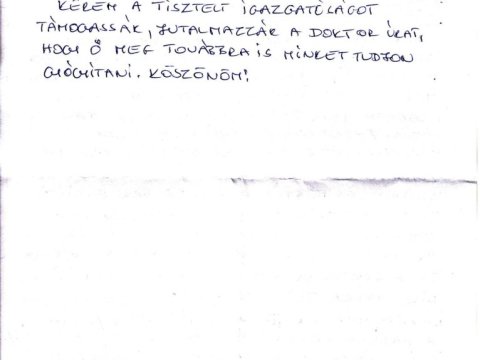 KÉREM A TISZTELT IGAZGATÓSÁGOT
TÁMOGASSÁK, JUTALMAZZÁK A DOKTOR ÚRAT,
HOGY Ő MEG TOVÁBBRA IS MINKET TUDJON
GYÓGYÍTANI. KÖSZÖNÖM!